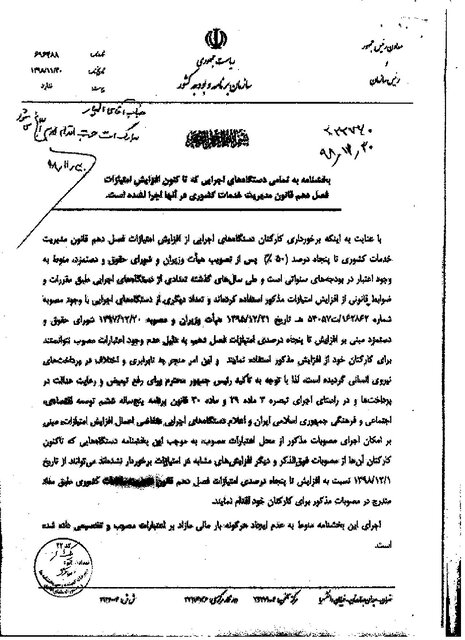 معاون رئیس جمهور
و
رئیس سازمان
ریاست جمهوری
سازمان برنامه و بودجه کشور
۶۹۶۴۸۸
۱۳۹۸/۱۱/۳۰
ندارد
بخشنامه به تمامی دستگاه‌های اجرایی که تا کنون افزایش امتیازات
فصل دهم قانون مدیریت خدمات کشوری در آنها اجرا نشده است.
با عنایت به اینکه برخورداری کارکنان دستگاه‌های اجرایی از افزایش امتیازات فصل دهم قانون مدیریت
خدمات کشوری تا پنجاه درصد (۵۰ ٪) پس از تصویب هیأت وزیران و شورای حقوق و دستمزد، منوط به
وجود اعتبار در بودجه‌های سنواتی است و طی سال‌های گذشته تعدادی از دستگاه‌های اجرایی طبق مقررات و
ضوابط قانونی از افزایش امتیازات مذکور استفاده کرده‌اند و تعداد دیگری از دستگاه‌های اجرایی با وجود مصوبه
شماره ۱۶۲۸۶۲/ت۵۳۰۵۷هـ تاریخ ۱۳۹۵/۱۲/۲۱ هیأت وزیران و مصوبه ۱۳۹۷/۱۲/۲۰ شورای حقوق و
دستمزد مبنی بر افزایش تا پنجاه درصدی امتیازات فصل دهم به دلیل عدم وجود اعتبارات مصوب نتوانستند
برای کارکنان خود از افزایش مذکور استفاده نمایند و این امر منجر به نابرابری و اختلاف در پرداخت‌های
نیروی انسانی گردیده است، لذا با توجه به تأکید رئیس جمهور محترم برای رفع تبعیض و رعایت عدالت در
پرداخت‌ها و در راستای اجرای تبصره ۳ ماده ۲۹ و ماده ۳۰ قانون برنامه پنج‌ساله ششم توسعه اقتصادی،
اجتماعی و فرهنگی جمهوری اسلامی ایران و اعلام دستگاه‌های اجرایی متقاضی اعمال افزایش امتیازات، مبنی
بر امکان اجرای مصوبات مذکور از محل اعتبارات مصوب، به موجب این بخشنامه دستگاه‌هایی که تاکنون
کارکنان آن‌ها از مصوبات فوق‌الذکر و دیگر افزایش‌های مشابه هر امتیازات برخوردار نشده‌اند می‌توانند از تاریخ
۱۳۹۸/۱۲/۱ نسبت به افزایش تا پنجاه درصدی امتیازات فصل دهم قانون کشوری طبق مفاد
مندرج در مصوبات مذکور برای کارکنان خود اقدام نمایند.
اجرای این بخشنامه منوط به عدم ایجاد هرگونه بار مالی مازاد بر اعتبارات مصوب و تخصیصی داده شده
است.